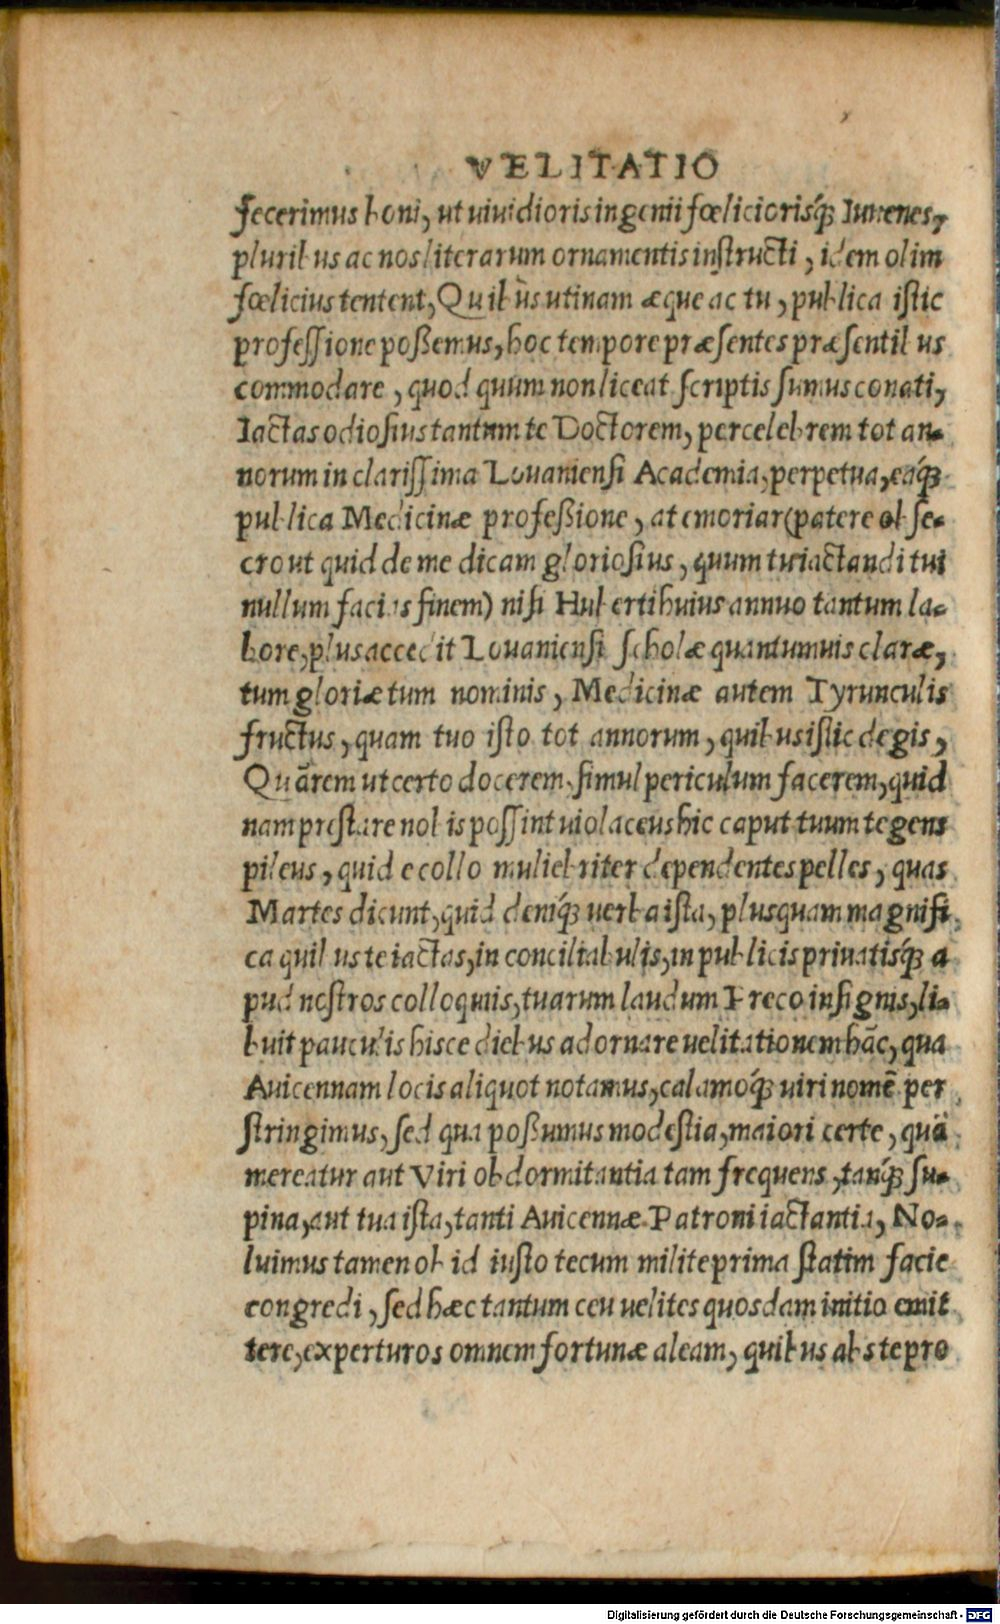 VELITATIO
fecerimus boni, ut uiuidioris ingenii fœliciorisq́; Iuuenes,
pluribus ac nos literarum ornamentis instructi, idem olim
fœlicius tentent, Quibus utinam æque ac tu, publica istic
professione poßemus, hoc tempore præsentes præsentibus
commodare, quod quum non liceat scriptis sumus conati,
Iactas odiosius tantum te Doctorem, percelebrem tot an-
norum in clarissima Louaniensi Academia, perpetua, eaq́;
publica Medicinæ profeßione, at emoriar (patere obse-
cro ut quid de me dicam gloriosius, quum tu iactandi tui
nullum facias finem) nisi Huberti huius annuo tantum la-
bore, plus accedit Louaniensi scholæ quantumuis claræ,
tum gloriæ tum nominis, Medicinæ autem Tyrunculis
fructus, quam tuo isto tot annorum, quibus istic degis,
Quā rem ut certo docerem, simul periculum facerem, quid
nam prestare nobis possint uiolaceus hic caput tuum tegens
pileus, quid e collo muliebriter dependentes pelles, quas
Martes dicunt, quid deniq́; uerba ista, plusquam magnifi
ca quibus te iactas, in conciliabulis, in publicis priuatisq́; a
pud nostros colloquiis, tuarum laudum Preco insignis, li-
buit pauculis hisce diebus adornare uelitationem hāc, qua
Auicennam locis aliquot notamus, calamoq́; uiri nomē per
stringimus, sed qua poßumus modestia, maiori certe, quā
mereatur aut Viri obdormitantia tam frequens, tanq́; su-
pina, aut tua ista, tanti Auicennæ Patroni iactantia, No-
luimus tamen ob id iusto tecum milite prima statim facie
congredi, sed hæc tantum ceu uelites quosdam initio emit
tere, experturos omnem fortunæ aleam, quibus abs te pro
Digitalisierung gefördert durch die Deutsche Forschungsgemeinschaft - DFG